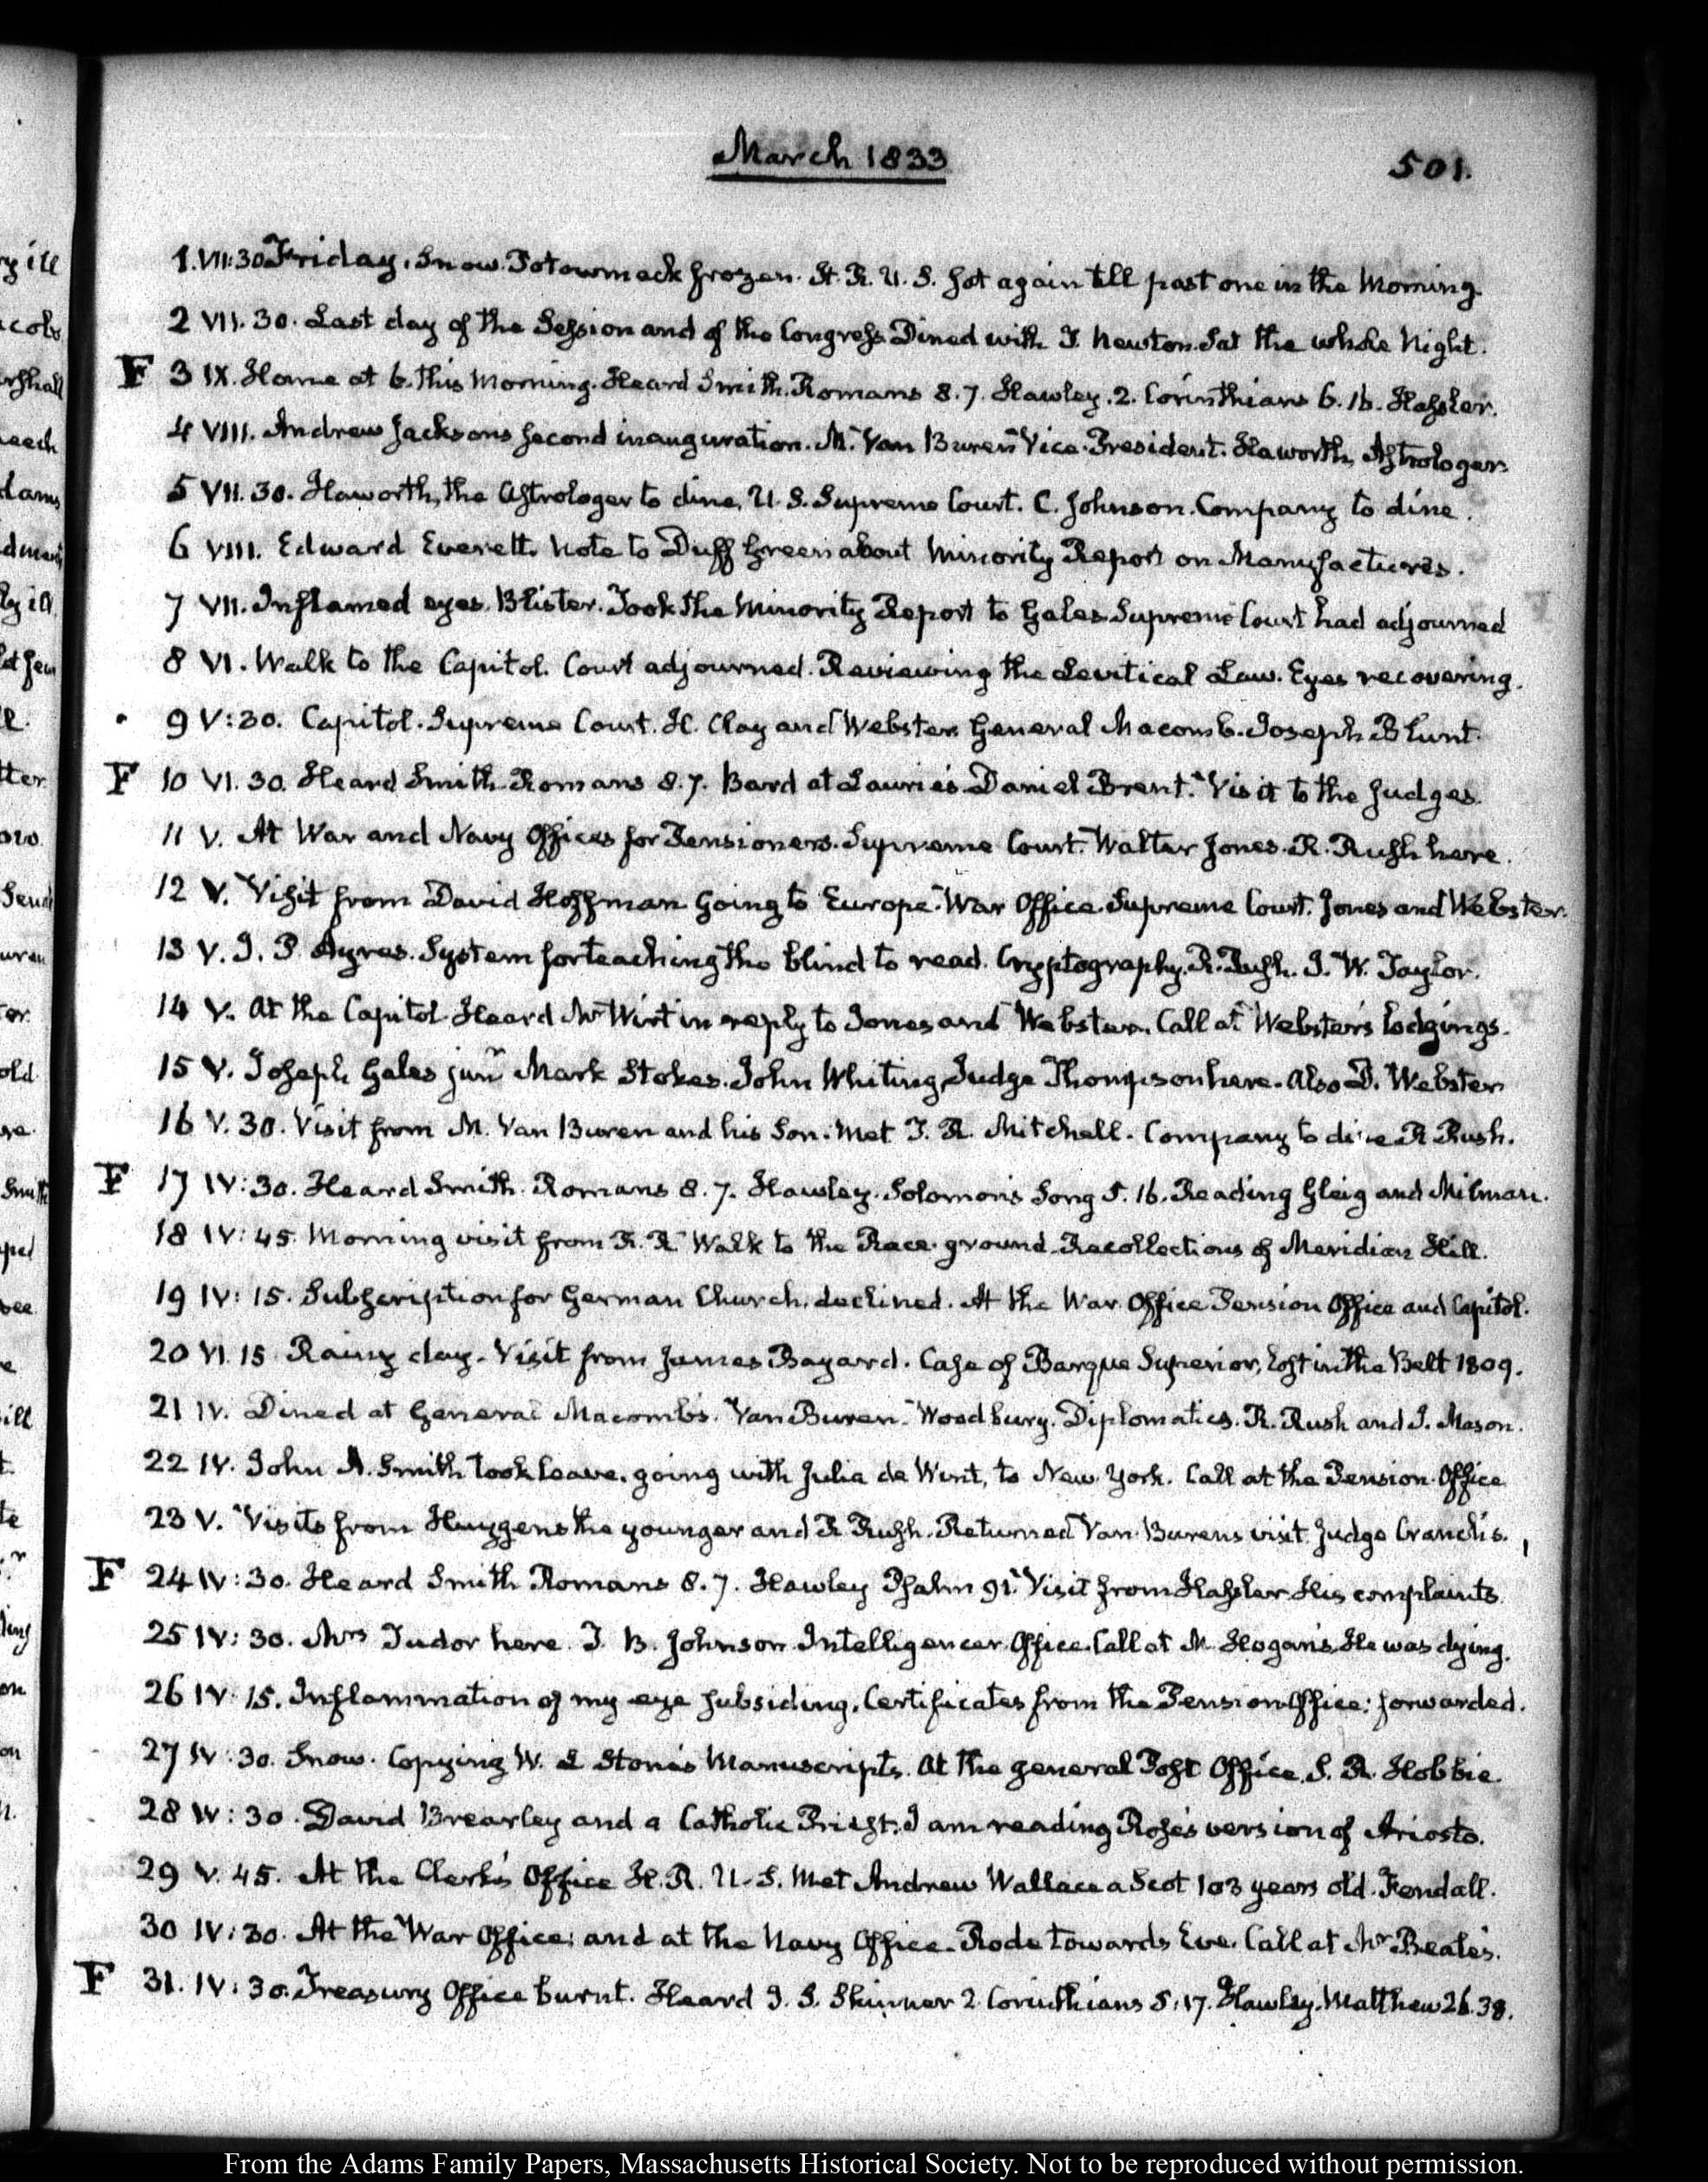 March 1833
501.
1. VII:30 Friday. Snow. Potowmack frozen. H. R. U. S. sat again till past one in the Morning.
2 VII. 30. Last day of the Session and of the Congress. Dined with T. Newton. Sat the whole Night.
F 3 IX. Home at 6. this Morning. Heard Smith. Romans 8. 7. Hawley. 2. Corinthians 6. 16. Hassler.
4 VIII. Andrew Jacksons second inauguration. M. Van Buren Vice-President. Haworth, Astrologer.
5 VII. 30. Haworth, the Astrologer to dine, U. S. Supreme Court. C. Johnson. Company to dine.
6 VIII. Edward Everett. Note to Duff Green about Minority Report on Manufactures.
7 VII. Inflamed eyes. Blister. Took the Minority Report to Gales. Supreme Court had adjourned
8 VI. Walk to the Capitol. Court adjourned. Reviewing the Levitical Law. Eyes recovering.
9 V:30. Capitol. Supreme Court. H. Clay and Webster. General Macomb. Joseph Blunt.
F 10 VI. 30. Heard Smith Romans 8. 7. Bard at Laurie's. Daniel Brent. Visit to the Judges.
11 V. At War and Navy Offices for Pensioners. Supreme Court. Walter Jones. R. Rush here.
12 V. Visit from David Hoffman Going to Europe. War Office. Supreme Court. Jones and Webster.
13 V. J. P. Ayres. System for teaching the blind to read. Cryptography. R. Rush. J. W. Taylor.
14 V. At the Capitol. Heard Mr Wirt in reply to Jones and Webster. Call at Webster's lodgings.
15 V. Joseph Gales junr Mark Stokes. John Whiting, Judge Thompson here. Also D. Webster
16 V. 30. Visit from M. Van Buren and his Son. Met T. R. Mitchell. Company to dine R Rush.
F 17 IV:30. Heard Smith. Romans 8. 7. Hawley. Solomon's Song 5. 16. Reading Gleig and Milman.
18 IV:45. Morning visit from R. R. Walk to the Race-ground. Recollections of Meridian Hill.
19 IV: 15. Subscription for German Church. declined. At the War Office Pension Office and Capitol.
20 VI. 15 Rainy day. Visit from James Bayard. Case of Barque Superior, lost in the Belt 1809.
21 IV. Dined at General Macomb's. Van Buren. Woodbury. Diplomatics. R. Rush and J. Mason.
22 IV. John A. Smith took leave, going with Julia de Wint, to New York. Call at the Pension Office
23 V. Visits from Huygens the younger and R Rush. Returned Van Burens visit. Judge Cranch's.
F 24 IV:30. Heard Smith Romans 8. 7. Hawley Psalm 91. Visit from Hassler. His complaints.
25 IV:30. Mrs Tudor here. T. B. Johnson. Intelligencer Office. Call at M. Hogan's. He was dying.
26 IV 15. Inflammation of my eye subsiding. Certificates from the Pension Office: forwarded.
27 IV:30. Snow. Copying W. L Stone's Manuscripts. At the general Post Office. S. R. Hobbie.
28 IV:30. David Brearley and a Catholic Priest. I am reading Rose's version of Ariosto.
29 V. 45. At the Clerk's Office H. R. U. S. Met Andrew Wallace a Scot 103 years old. Fendall.
30 IV:30. At the War Office: and at the Navy Office. Rode towards Eve. Call at Mr Beale's.
F 31. IV:30. Treasury Office burnt. Heard J. S. Skinner 2. Corinthians 5. 17. Hawley. Matthew 26. 38.
From the Adams Family Papers, Massachusetts Historical Society. Not to be reproduced without permission.